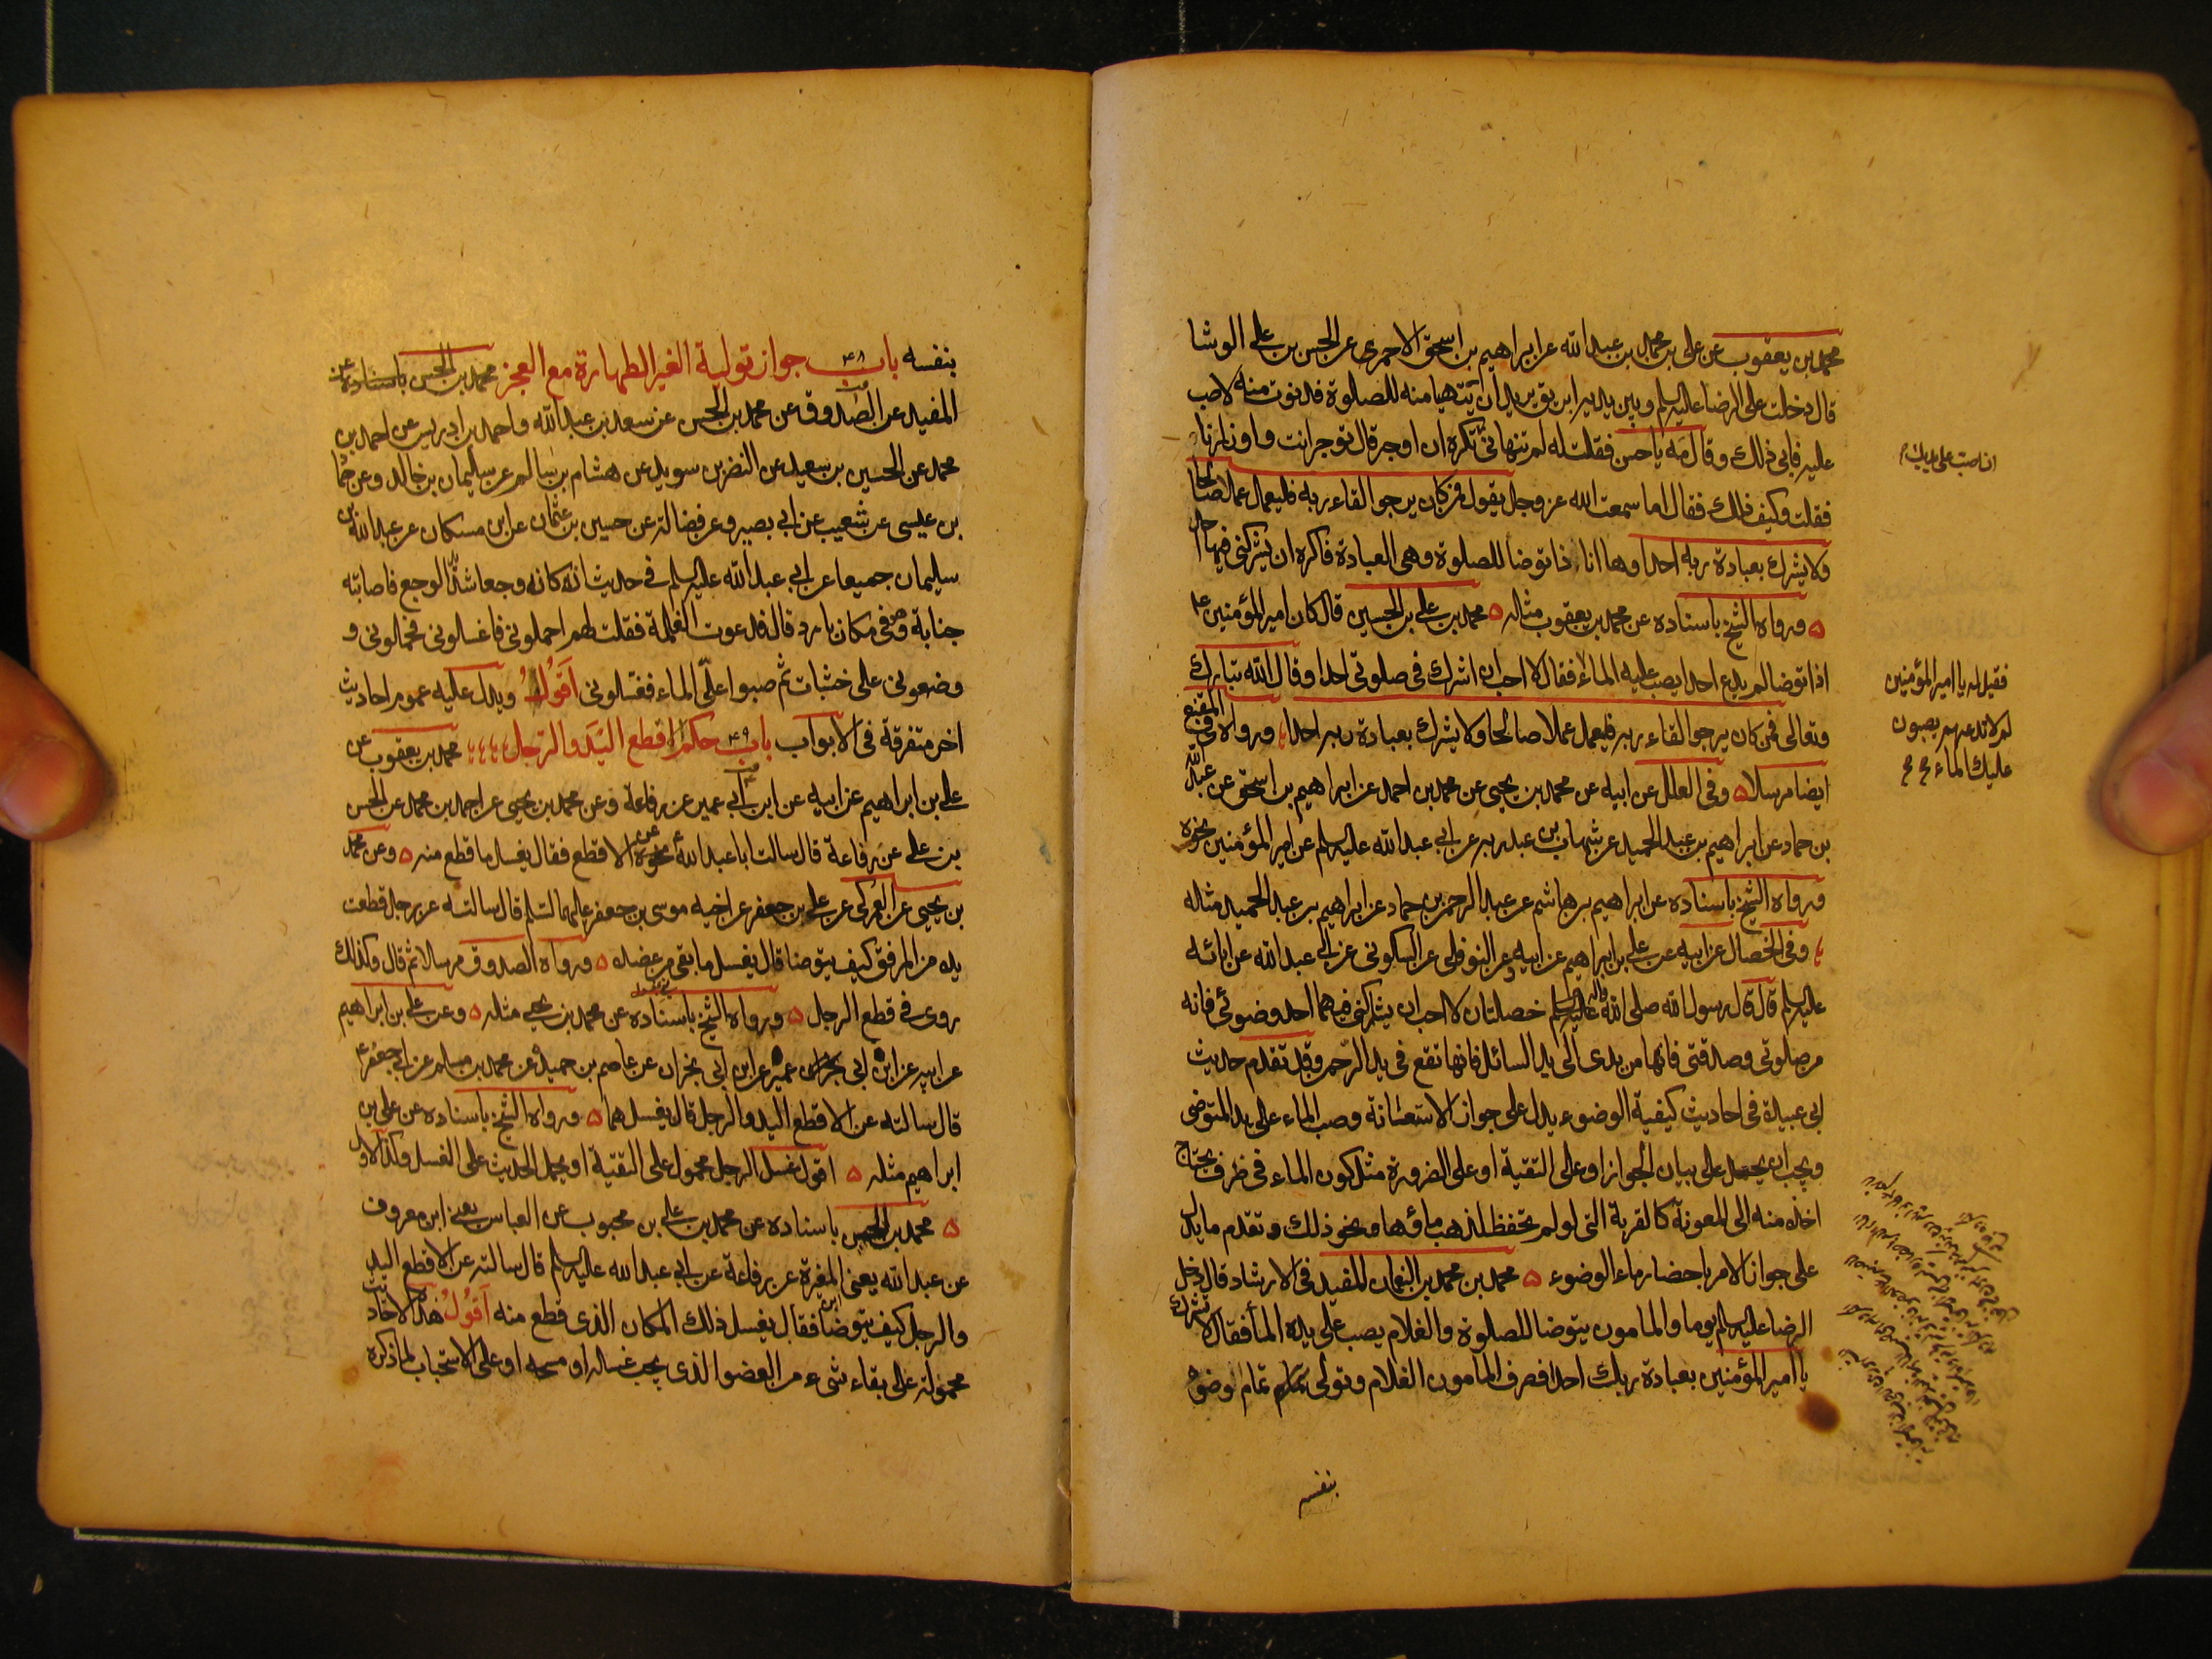 محمد بن يعقوب عن على بن محمد بن عبد الله عن ابراهيم بن اسحق الاحمرى عن الحسن بن على الوشا
قال دخلت على الرضا عليه السلم وبين يديه ابريق يريد ان يتهيا منه للصلوة فدنوت منه لاصب
عليه فابى ذلك وقال مه يا حسن فقلت له لم تنهانى تكره ان اوجر قال توجر انت واوزر انا
فقلت وكيف ذلك فقال اما سمعت الله عز وجل يقول فمن كان يرجوا لقاء ربه فليعمل عملا صالحا
ولا يشرك بعبادة ربه احدا وها انا ذا توضا للصلوة وهى العبادة فاكره ان يشركنى فيها احد
ورواه الشيخ باسناده عن محمد بن يعقوب مثله محمد بن على بن الحسين قال كان امير المؤمنين ع
اذا توضا لم يدع احدا يصب عليه الماء فقال لا احب ان اشرك فى صلوتى احدا وقال الله تبارك
وتعالى فمن كان يرجوا لقاء ربه فليعمل عملا صالحا ولا يشرك بعبادة ربه احدا ورواه فى المقنع
ايضا مرسلا وفى العلل عن ابيه عن محمد بن يحيى عن محمد بن احمد عن ابراهيم بن اسحق عن عبد الله
بن حماد عن ابراهيم بن عبد الحميد عن شهاب بن عبد ربه عن ابى عبد الله عليه السلم عن امير المؤمنين نحوه
ورواه الشيخ باسناده عن ابراهيم بن هاشم عن عبد الرحمن بن حماد عن ابراهيم بن عبد الحميد مثله
وفى الخصال عن ابيه عن على بن ابراهيم عن ابيه عن النوفلى عن السكونى عن ابى عبد الله عن ابائه
عليه السلم قال قال رسول الله صلى الله عليه واله وسلم خصلتان لا احب ان يشاركنى فيهما احد وضوئى فانه
من صلوتى وصدقتى فانها من يدى الى يد السائل فانها تقع فى يد الرحمن وقد تقدم حديث
ابى عبيدة فى احاديث كيفية الوضوء يدل على جواز الاستعانة وصب الماء على يد المتوضى
ويجب ان يحمل على بيان الجواز او على التقية او على الضرورة مثل كون الماء فى ظرف يحتاج
اخذه منه الى المعونة كالقربة التى لو لم تحفظ لذهب ماؤها ونحو ذلك وتقدم ما يدل
على جواز الامر باحضار ماء الوضوء محمد بن محمد بن النعمان المفيد فى الارشاد قال دخل
الرضا عليه السلم يوما والمامون يتوضا للصلوة والغلام يصب على يده الماء فقال لا تشرك
يا امير المؤمنين بعبادة ربك احدا فصرف المامون الغلام وتولى تمام وضوئه
بنفسه
انا صب على يديك
فقيل له يا امير المؤمنين
لم لا تدعهم يصبون
عليك الماء صح
بنفسه باب جواز تولية الغير الطهارة مع العجز محمد بن الحسن باسناده عن
المفيد عن الصدوق عن محمد بن الحسن عن سعد بن عبد الله واحمد بن ادريس عن احمد بن
محمد عن الحسين بن سعيد عن النضر بن سويد عن هشام بن سالم عن سليمان بن خالد وعن حماد
بن عيسى عن شعيب عن ابى بصير وعن فضالة عن حسين بن عثمان عن ابن مسكان عن عبد الله بن
سليمان جميعا عن ابى عبد الله عليه السلم فى حديث انه كان وجعا شديد الوجع فاصابته
جنابة وهو فى مكان بارد قال فدعوت الغلمة فقلت لهم احملونى فاغسلونى فحملونى و
وضعونى على خشبات ثم صبوا على الماء فغسلونى اقول ويدل عليه عموم احاديث
اخر متفرقة فى الابواب باب ٤٩ حكم الاقطع اليد والرجل محمد بن يعقوب عن
على بن ابراهيم عن ابيه عن ابن ابى عمير عن رفاعة وعن محمد بن يحيى عن احمد بن محمد عن الحسن
بن على عن رفاعة قال سالت ابا عبد الله ع عن الاقطع فقال يغسل ما قطع منه وعن محمد
بن يحيى عن العمركى عن على بن جعفر عن اخيه موسى بن جعفر عليهما السلم قال سالته عن رجل قطعت
يده من المرفق كيف يتوضا قال يغسل ما بقى من عضده ورواه الصدوق مرسلا ثم قال وكذلك
روى فى قطع الرجل ورواه الشيخ باسناده عن محمد بن يحيى مثله وعن على بن ابراهيم
عن ابيه عن ابن ابى عمير عن ابن ابى نجران عن عاصم بن حميد عن محمد بن مسلم عن ابى جعفر ع
قال سالته عن الاقطع اليد والرجل قال يغسلهما ورواه الشيخ باسناده عن على بن
ابراهيم مثله اقول غسل الرجل محمول على التقية او يحمل الحديث على الغسل وكذا الاول
محمد بن الحسن باسناده عن محمد بن على بن محبوب عن العباس يعنى ابن معروف
عن عبد الله يعنى ابن المغيرة عن رفاعة عن ابى عبد الله عليه السلم قال سالته عن الاقطع اليد
والرجل كيف يتوضا فقال يغسل ذلك المكان الذى قطع منه اقول هذه الاحاديث
محمولة على بقاء شىء من العضو الذى يجب غسله او مسحه او على الاستحباب لما ذكره